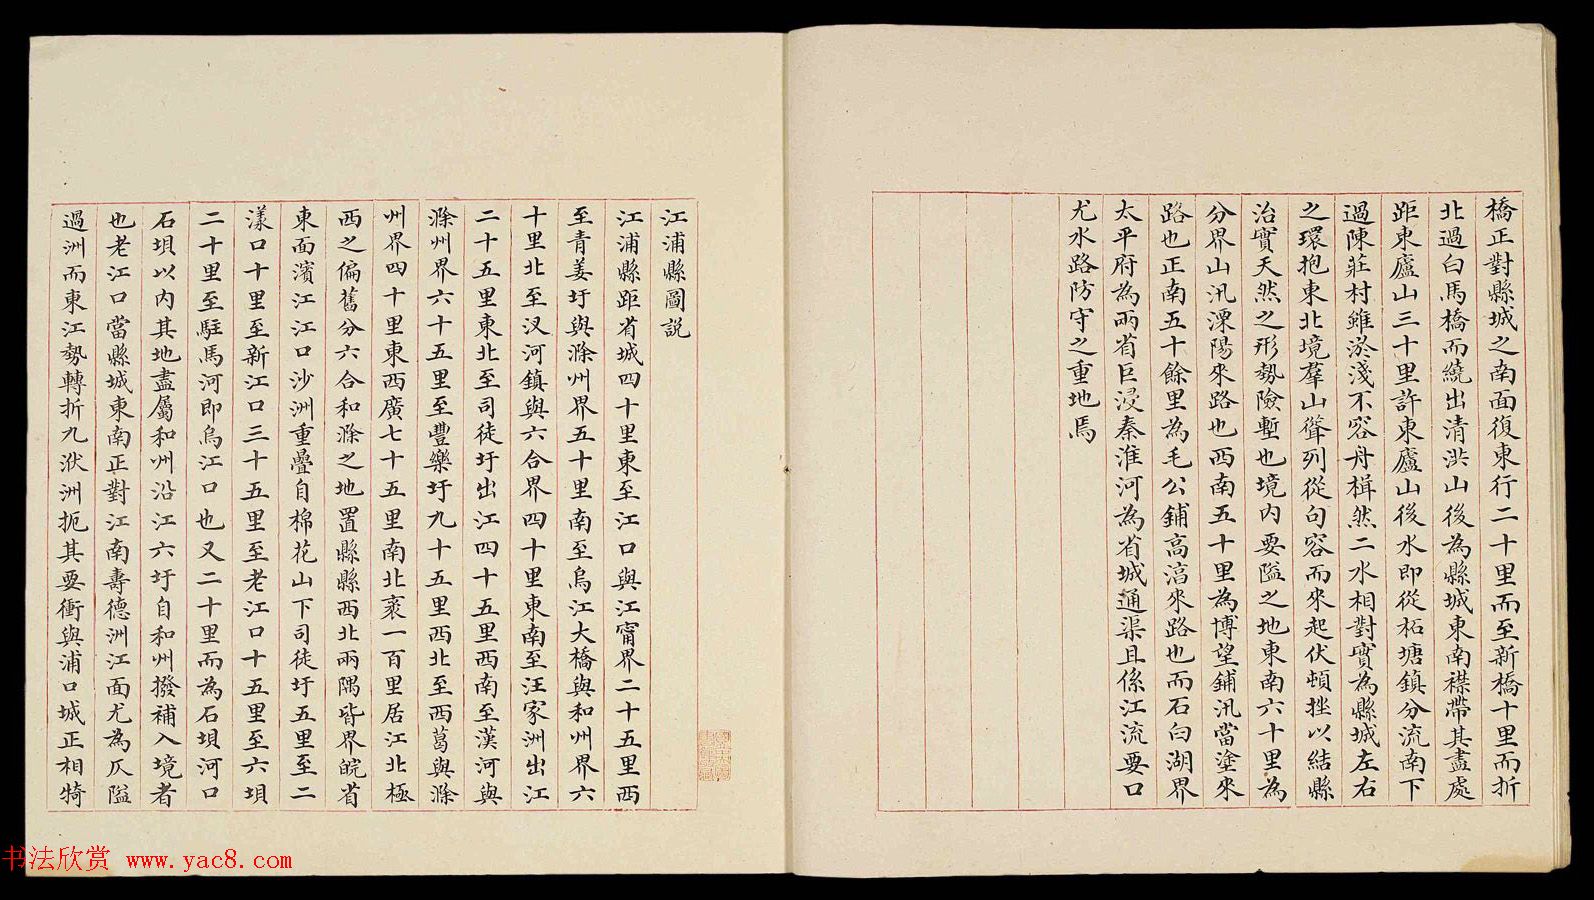 橋正對縣城之南面復東行二十里而至新橋十里而折
北過白馬橋而繞出清洪山後為縣城東南襟帶其盡處
距東廬山三十里許東廬山後水即從柘塘鎮分流南下
過陳莊村雖淤淺不容舟楫然二水相對實為縣城左右
之環抱東北境羣山聳列從句容而來起伏頓挫以結縣
治實天然之形勢險塹也境內要隘之地東南六十里為
分界山汛溧陽來路也西南五十里為博望鋪汛當塗來
路也正南五十餘里為毛公鋪高淳來路也而石臼湖界
太平府為兩省巨浸秦淮河為省城通渠且係江流要口
尤水路防守之重地焉
江浦縣圖說
江浦縣距省城四十里東至江口與江甯界二十五里西
至青姜圩與滁州界五十里南至烏江大橋與和州界六
十里北至汊河鎮與六合界四十里東南至汪家洲出江
二十五里東北至司徒圩出江四十五里西南至漢河與
滁州界六十五里至豐樂圩九十五里西北至西葛與滁
州界四十里東西廣七十五里南北袤一百里居江北極
西之偏舊分六合和滁之地置縣縣西北兩隅皆界皖省
東面濱江江口沙洲重疊自棉花山下司徒圩五里至二
漾口十里至新江口三十五里至老江口十五里至六垻
二十里至駐馬河即烏江口也又二十里而為石垻河口
石垻以內其地盡屬和州沿江六圩自和州撥補入境者
也老江口當縣城東南正對江南壽德洲江面尤為仄隘
過洲而東江勢轉折九洑洲扼其要衝與浦口城正相犄
书法欣赏 www.yac8.com